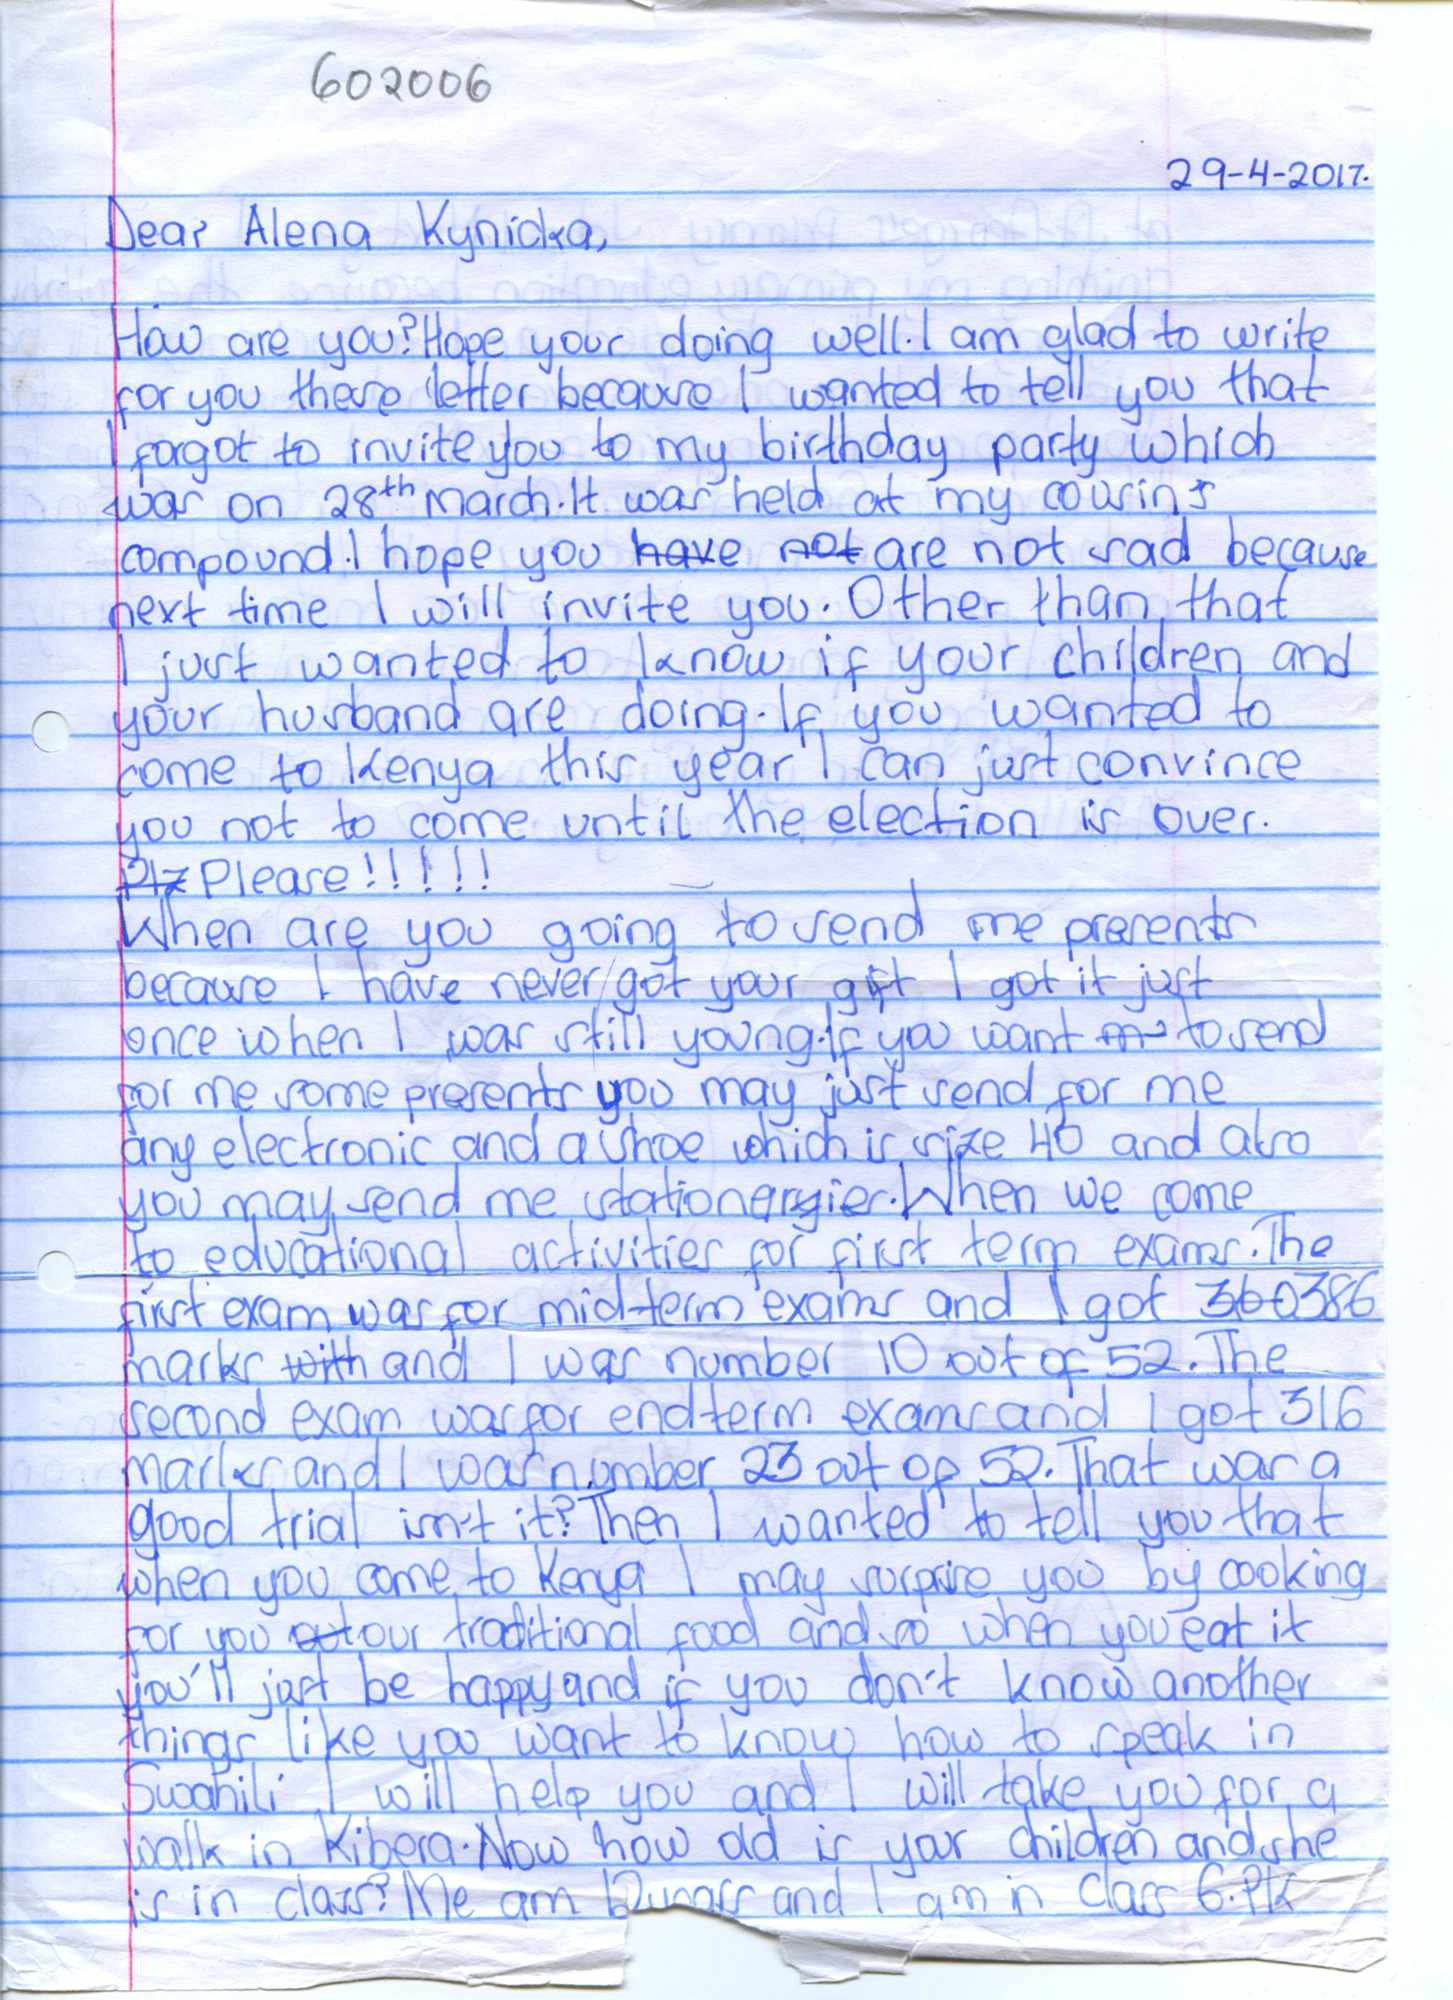 602006
29-4-2017.
Dear Alena Kynicka,
How are you? Hope your doing well. I am glad to write
for you these letter because I wanted to tell you that
I forgot to invite you to my birthday party which
was on 28th March. It was held at my cousins
compound. I hope you have not are not sad because
next time I will invite you. Other than that
I just wanted to know if your children and
your husband are doing. If you wanted to
come to Kenya this year I can just convince
you not to come until the election is over.
Plz Please!!!!!
When are you going to send me presents
because I have never got your gift I got it just
once when I was still young. If you want to send
for me some presents you may just send for me
any electronic and a shoe which is size 40 and also
you may send me When we come
to educational activities for first term exams. The
first exam was for mid-term exams and I got 360 386
marks with and I was number 10 out of 52. The
second exam was for endterm exams and I got 316
marks and I was number 23 out of 52. That was a
good trial isn't it? Then I wanted to tell you that
when you come to Kenya I may surprise you by cooking
for you out our traditional food and so when you eat it
you'll just be happy and if you don't know another
things like you want to know how to speak in
Swahili I will help you and I will take you for a
walk in Kibera. Now how old is your children and she
is in class? Me am 12 and I am in class 6.